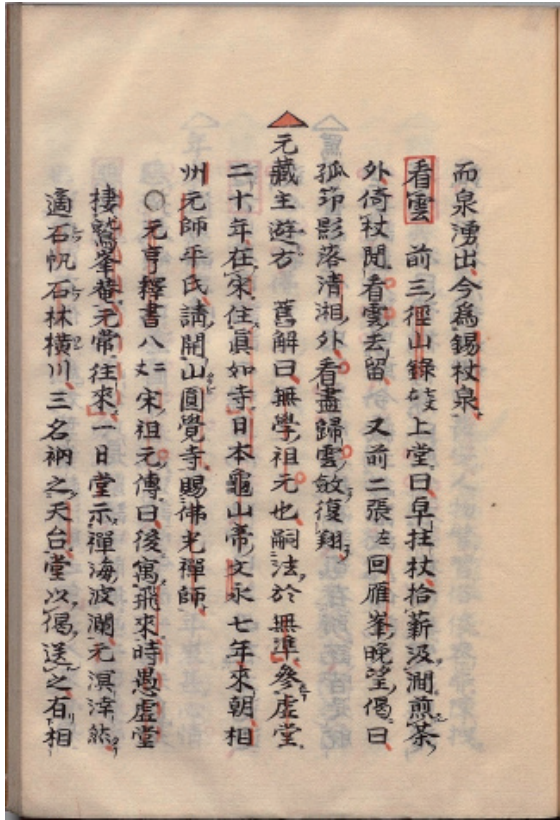 而泉湧出今爲錫杖泉
看雲 前三徑山錄 上堂曰卓拄杖拾薪汲澗煎茶
外倚杖閒看雲去留 又前二張左回雁峯晚望偈曰
孤笻影落清湘外看盡歸雲斂復翔
元藏主遊方 舊解曰無學祖元也嗣法於無準參虛堂
二十年在宋住眞如寺日本龜山帝文永七年來朝相
州元帥平氏請開山圓覺寺賜佛光禪師
○元亨釋書八 宋祖元傳曰後寓飛來時愚虛堂
棲鷲峯菴元常往來一日堂示禪海波瀾元溟涬然
適石帆石林橫川三名衲之天台堂以偈送之有相